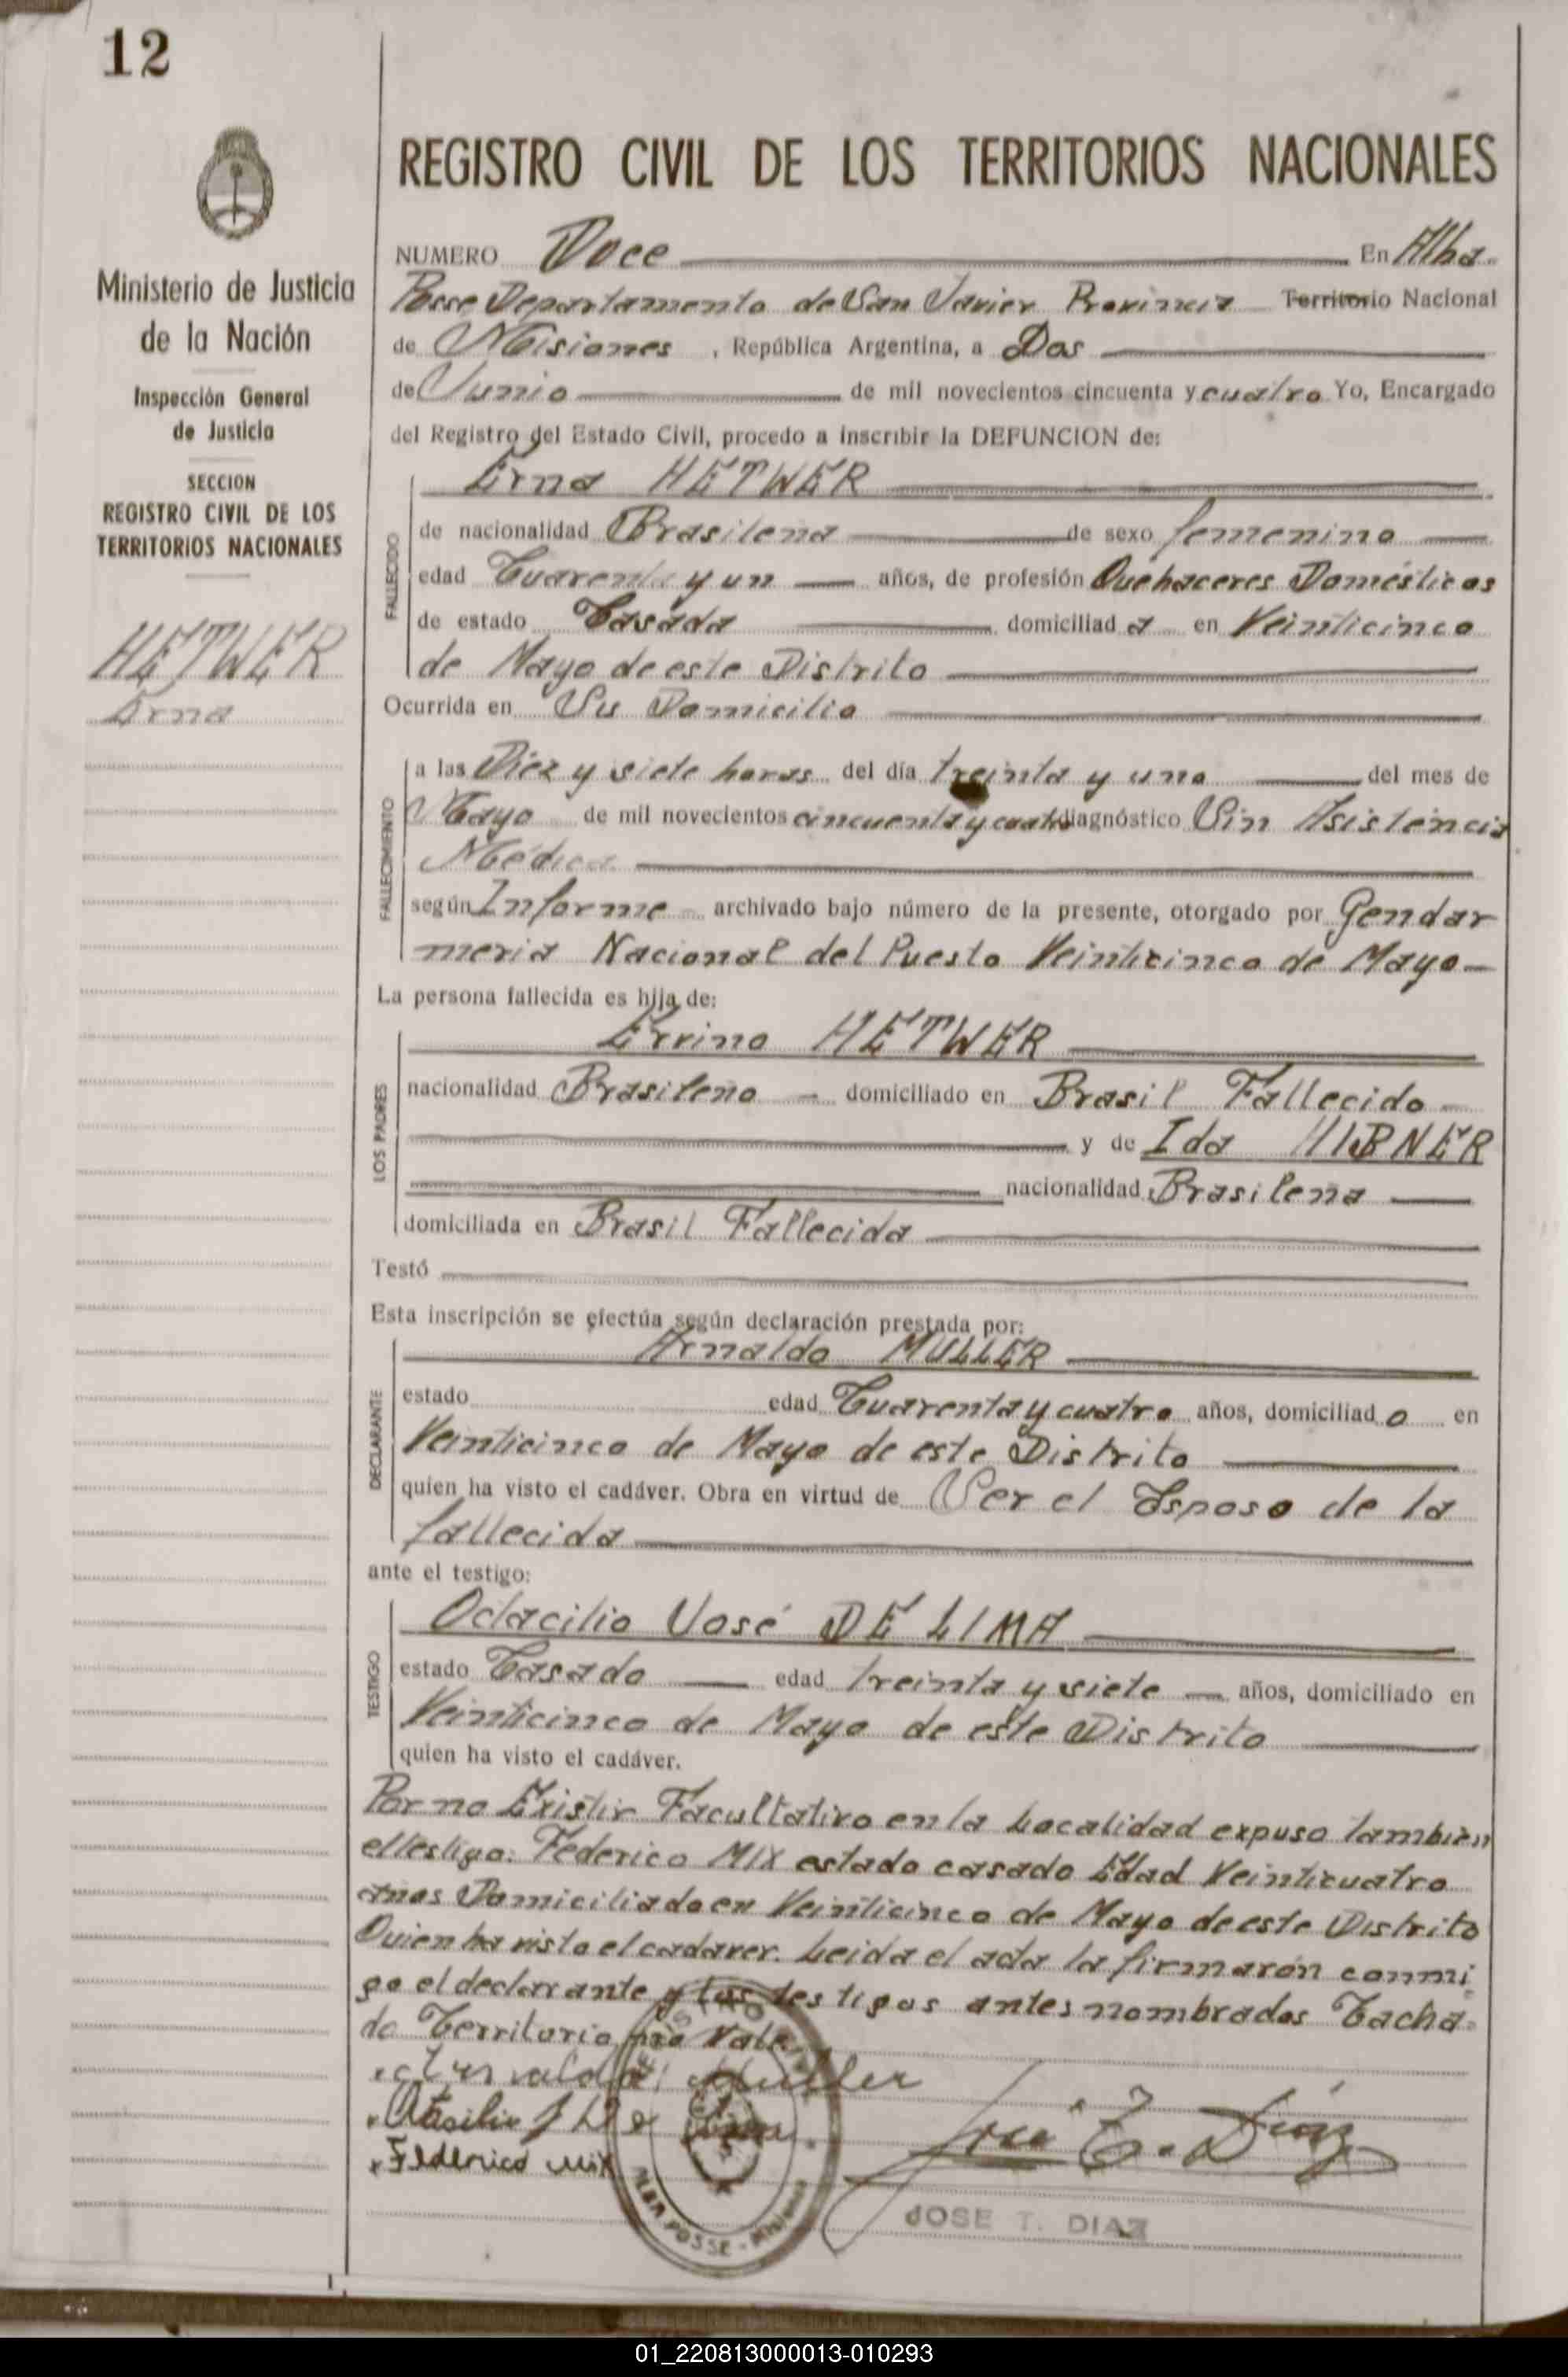 12
Ministerio de Justicia
de la Nación
Inspección General
de Justicia
SECCION
REGISTRO CIVIL DE LOS
TERRITORIOS NACIONALES
HETWER
Erna
REGISTRO CIVIL DE LOS TERRITORIOS NACIONALES
NUMERO Doce En Alba
Posse Departamento de San Javier Provincia Territorio Nacional
de Misiones, República Argentina, a Dos
de Junio de mil novecientos cincuenta y cuatro Yo, Encargado
del Registro del Estado Civil, procedo a inscribir la DEFUNCION de:
FALLECIDO
Erna HETWER
de nacionalidad Brasilena de sexo femenino
edad Cuarenta y un años, de profesión Quehaceres Domésticos
de estado Casada domiciliad a en Veinticinco
de Mayo de este Distrito
Ocurrida en Su Domicilio
FALLECIMIENTO
a las Diez y siete horas del día treinta y uno del mes de
Mayo de mil novecientos cincuenta y cuatro diagnóstico Sin Asistencia
Médica
según Informe archivado bajo número de la presente, otorgado por Gendar
meria Nacional del Puesto Veinticinco de Mayo
La persona fallecida es hija de:
LOS PADRES
Ervino HETWER
nacionalidad Brasileno domiciliado en Brasil Fallecido
y de Ida HIBNER
nacionalidad Brasilena
domiciliada en Brasil Fallecida
Testó
Esta inscripción se efectúa según declaración prestada por:
DECLARANTE
Arnaldo MULLER
estado edad Cuarenta y cuatro años, domiciliad o en
Veinticinco de Mayo de este Distrito
quien ha visto el cadáver. Obra en virtud de Ser el Esposo de la
fallecida
ante el testigo:
TESTIGO
Odacilio José DE LIMA
estado Casado edad treinta y siete años, domiciliado en
Veinticinco de Mayo de este Distrito
quien ha visto el cadáver.
Por no Existir Facultativo en la Localidad expuso tambien
el testigo: Federico MIX estado casado Edad Veinticuatro
años Domiciliado en Veinticinco de Mayo de este Distrito
Quien ha visto el cadaver. Leida el acta la firmarón conmi
go el declarante y los testigos antes nombrados Tacha-
do Territorio no Vale
Arnaldo Muller
J De Lima
Federico Mix
José T. Díaz
ALBA POSSE - Misiones
JOSE T. DIAZ
01_220813000013-010293